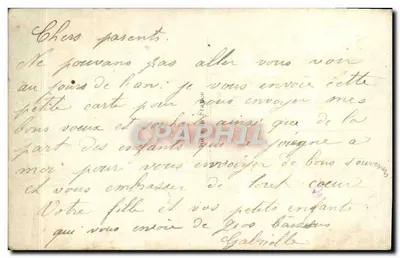 Chers parents.
Ne pouvans pas aller vous voir
au jours de l'an. je vous envoie cette
petite carte pour vous envoyer mes
bons voeux et souhaits ainsi que de la
part des enfants qui se joigne a
moi pour vous envoyer de bons souvenirs
et vous embrasser de tout coeur
Votre fille et vos petits enfants
qui vous envoie de gros baisers
Gabrielle
CPAPHIL